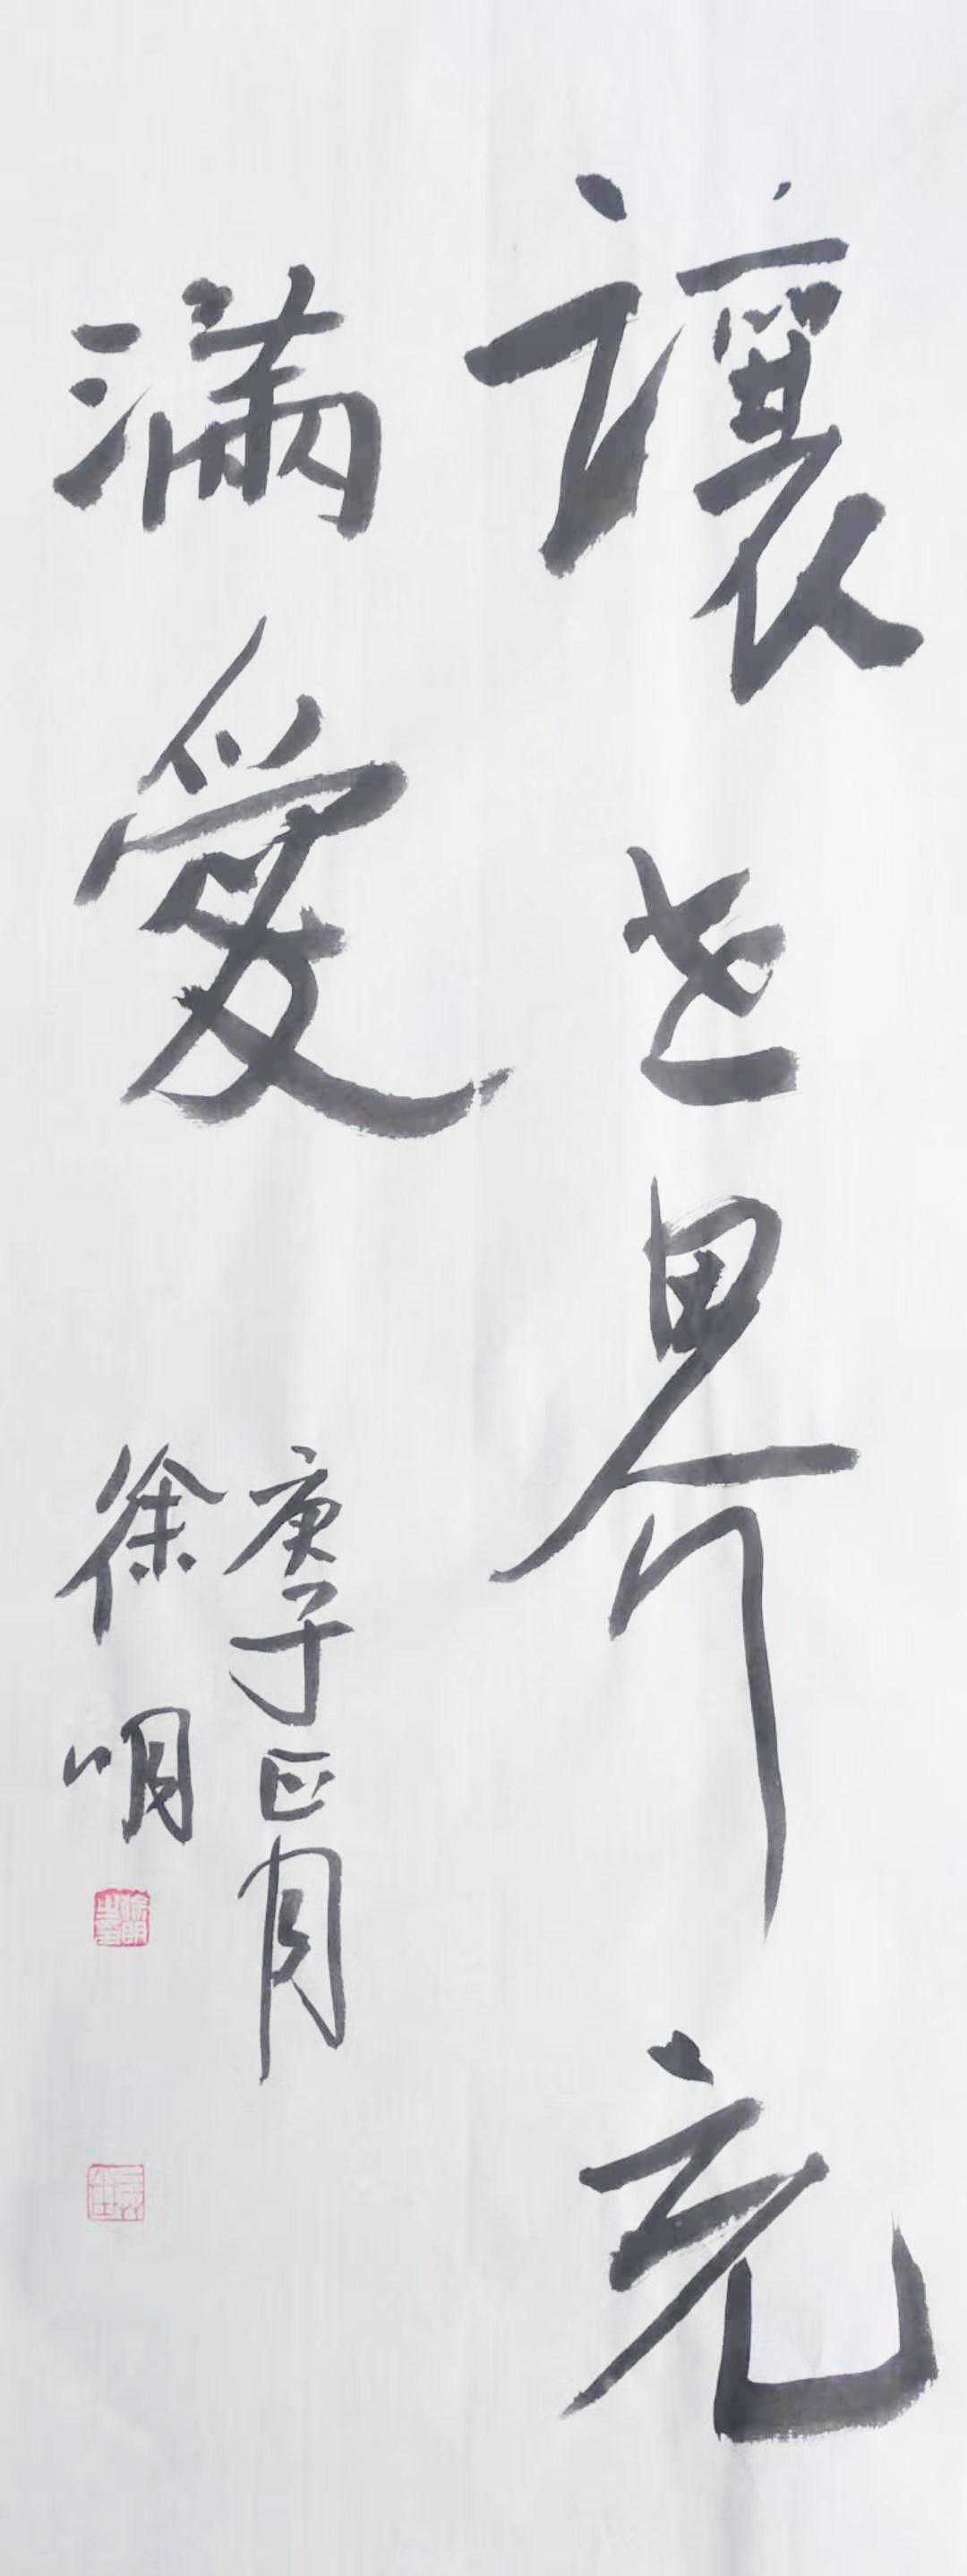 讓世界充
滿愛
庚子正月
徐明